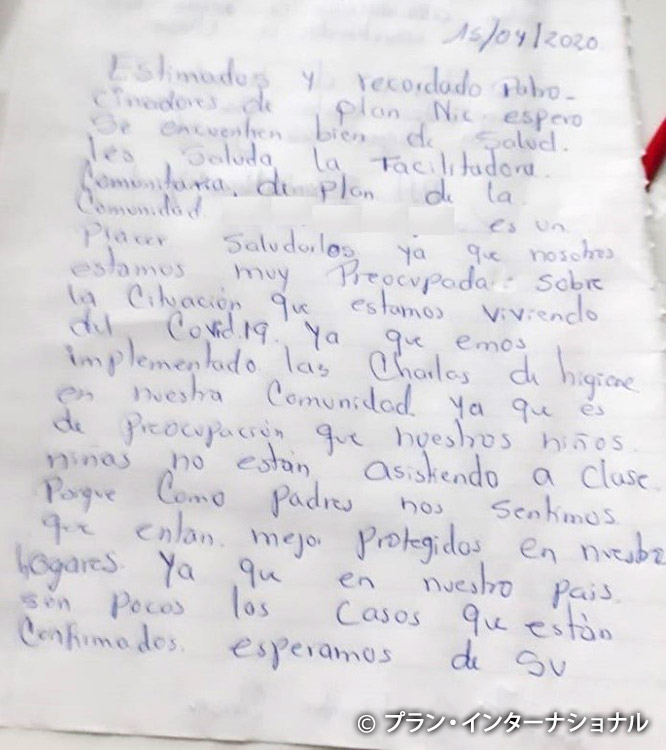 15/04/2020
Estimados y recordado Patro-
cinadores de plan Nic. espero
Se encuentren bien de Salud.
les Saluda la Facilitadora.
Comunitaria. de plan de la
Comunidad es un
Placer Saludarlos ya que nosotros
estamos muy Preocupada. Sobre
la Cituación que estamos viviendo
del Covid.19. Ya que emos
implementado las Charlas de higiene
en nuestra Comunidad ya que es
de preocupación que nuestros niños.
niñas no están asistiendo a clase.
Porque Como padres nos Sentimos.
que entan. mejor protegidos en nuestro
hogares. Ya que en nuestro pais.
son pocos los casos que están
Confirmados. esperamos de Su
© プラン・インターナショナル